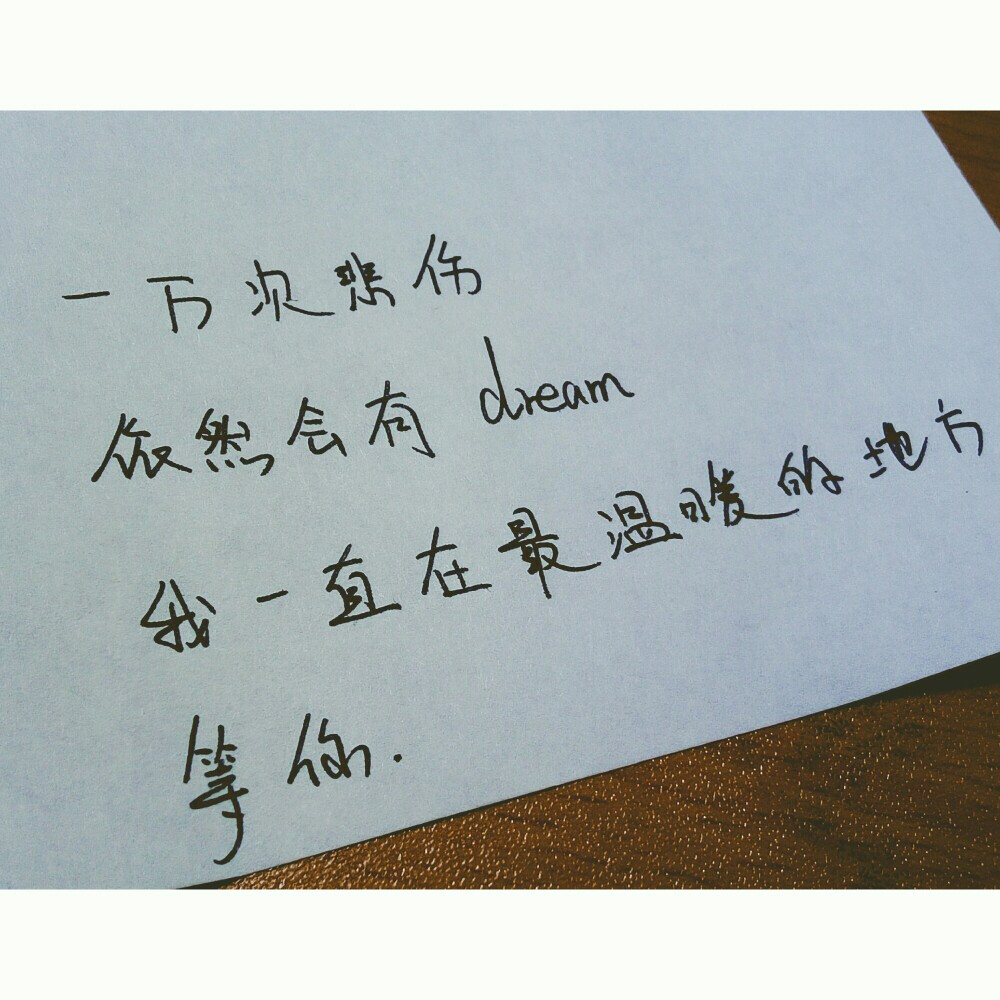 一万次悲伤
依然会有 dream
我一直在最温暖的地方
等你.